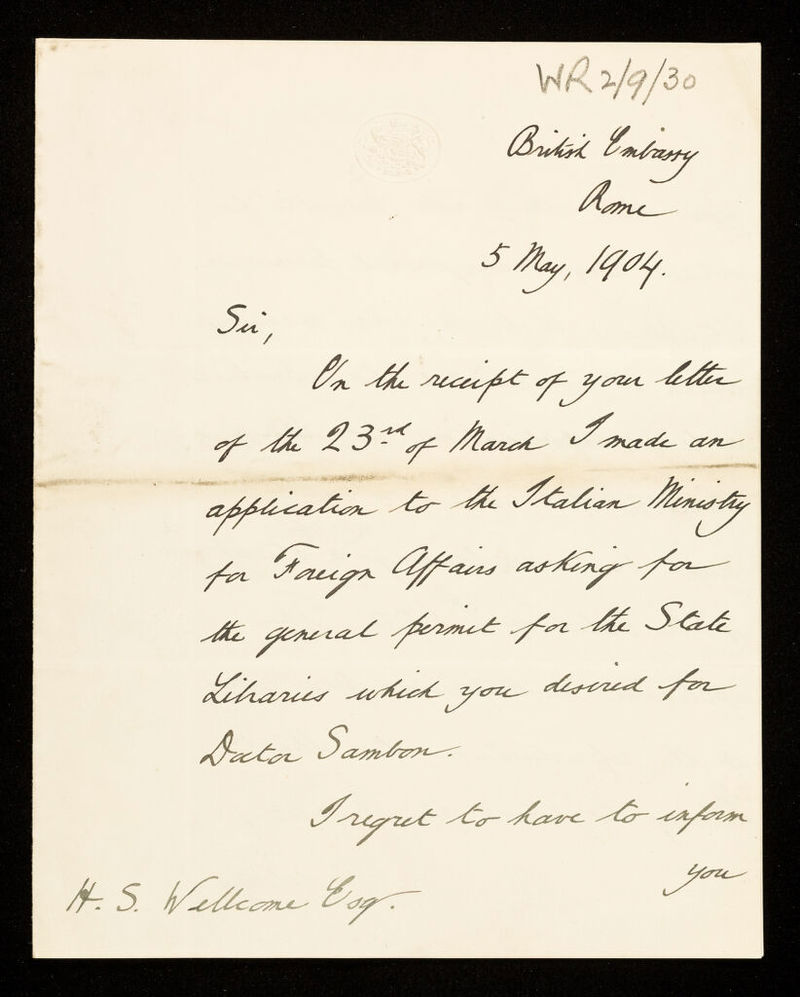 WR 2/9/30
British Embassy
Rome
5 May, 1904.
Sir,
On the receipt of your letter
of the 23rd of March I made an
application to the Italian Ministry
for Foreign Affairs asking for
the general permit for the State
Libraries which you desired for
Doctor Sambon.
I regret to have to inform
you
H. S. Wellcome Esqr.